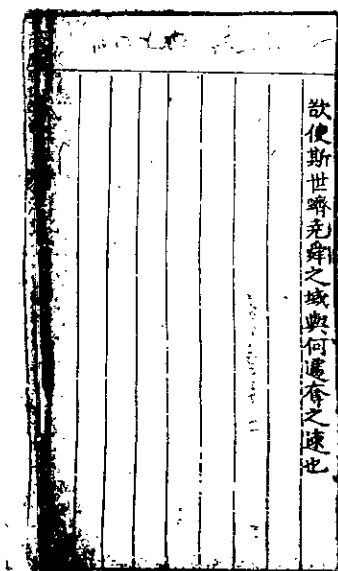 欲使斯世躋尭舜之域與何遽奪之速也